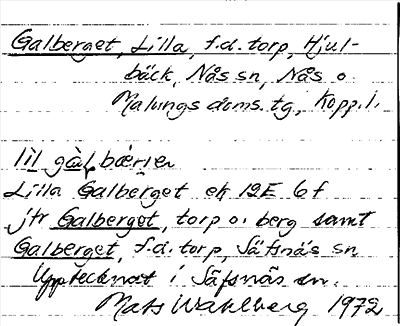 Galberget, Lilla, f.d. torp, Hjul-
bäck, Nås sn, Nås o.
Malungs doms. tg, Kopp. l.
lìl gàlbærjen
Lilla Galberget ek 12E 6f
jfr Galberget, torp o. berg samt
Galberget, f.d. torp, Säfsnäs sn
Upptecknat i Säfsnäs sn.
Mats Wahlberg 1972